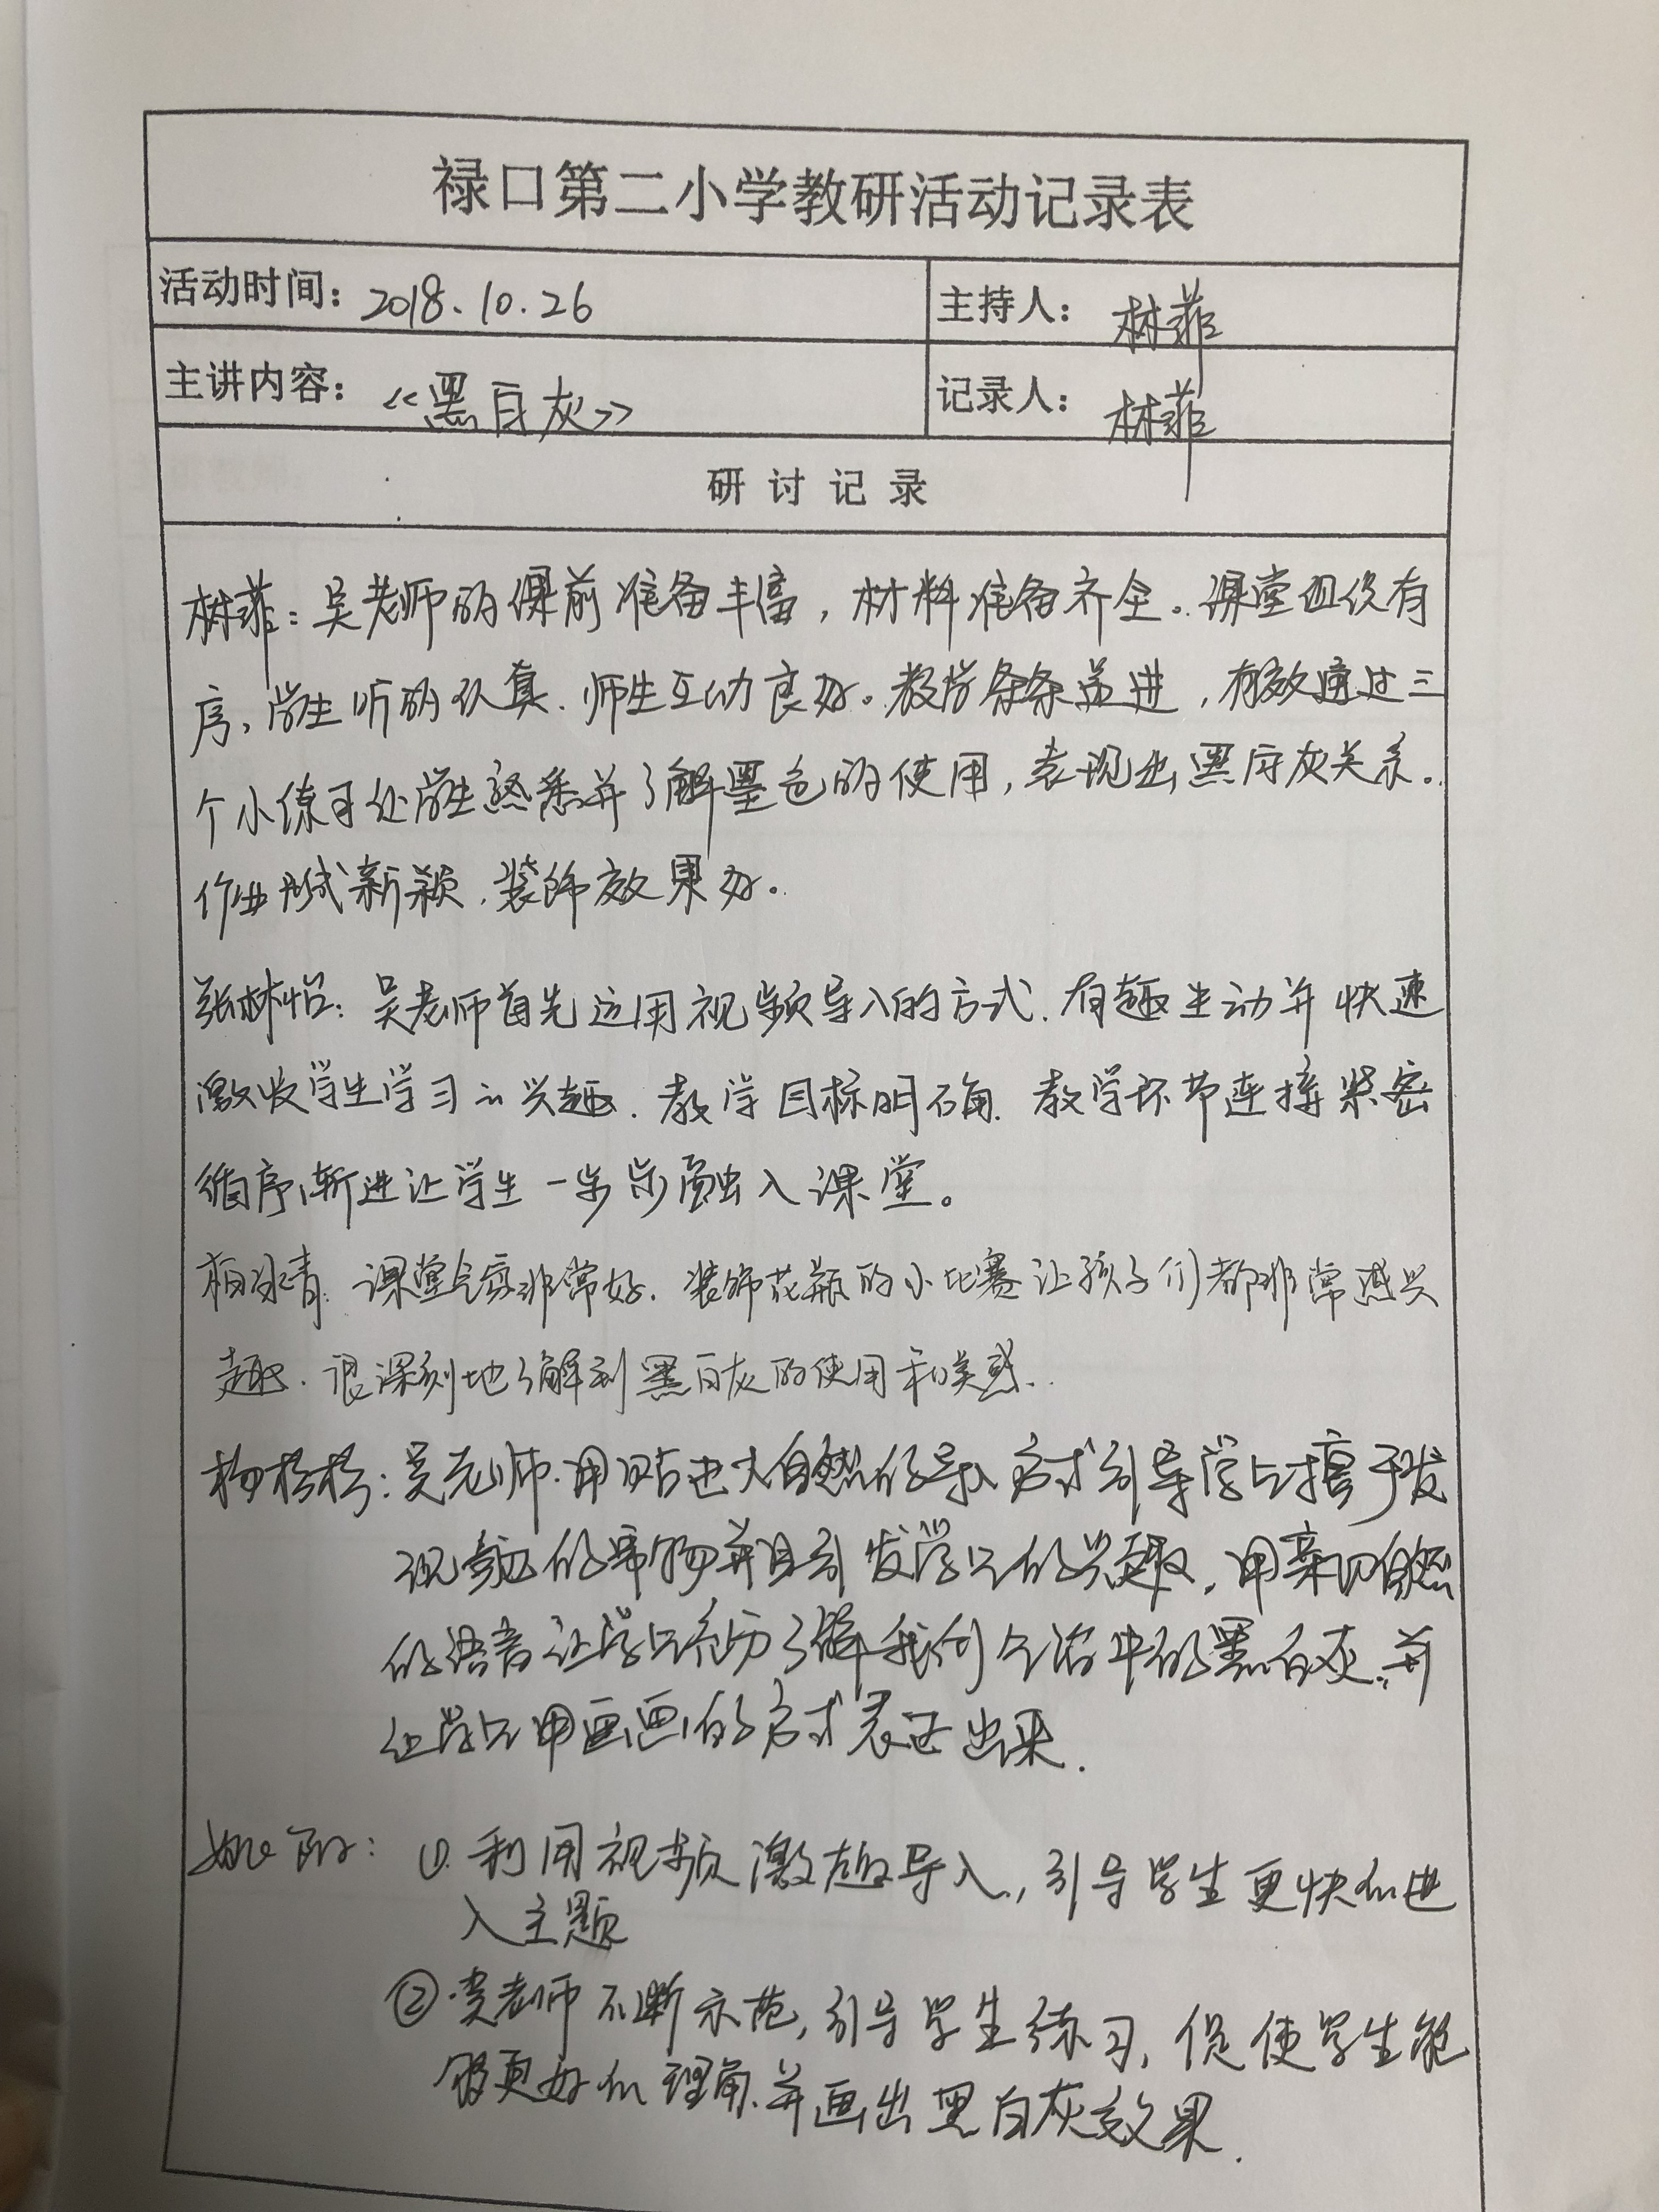 禄口第二小学教研活动记录表
活动时间：2018.10.26
主持人：林菲
主讲内容：《黑白灰》
记录人：林菲
研讨记录
林菲：吴老师的课前准备丰富，材料准备齐全。课堂组织有
序，学生听的认真、师生互动良好。教学条条递进，有效通过三
个小练习让学生熟悉并了解墨色的使用，表现出黑白灰关系。
作业形式新颖，装饰效果好。
张林怡：吴老师首先运用视频导入的方式，有趣生动并快速
激发学生学习的兴趣，教学目标明确，教学环节连接紧密
循序渐进让学生一步步融入课堂。
柏冰青：课堂气氛非常好，装饰花瓶的小比赛让孩子们都非常感兴
趣，很深刻地了解到黑白灰的使用和美感。
杨杨：吴老师用贴近大自然的导入方式引导学生擅于发
现身边的事物并且引发学生的兴趣，用亲切自然
的语言让学生充分了解我们生活中的黑白灰，并
让学生用画画的方式表达出来.
：①利用视频激趣导入，引导学生更快的进
入主题
②吴老师不断示范，引导学生练习，促使学生能
够更好的理解并画出黑白灰效果.